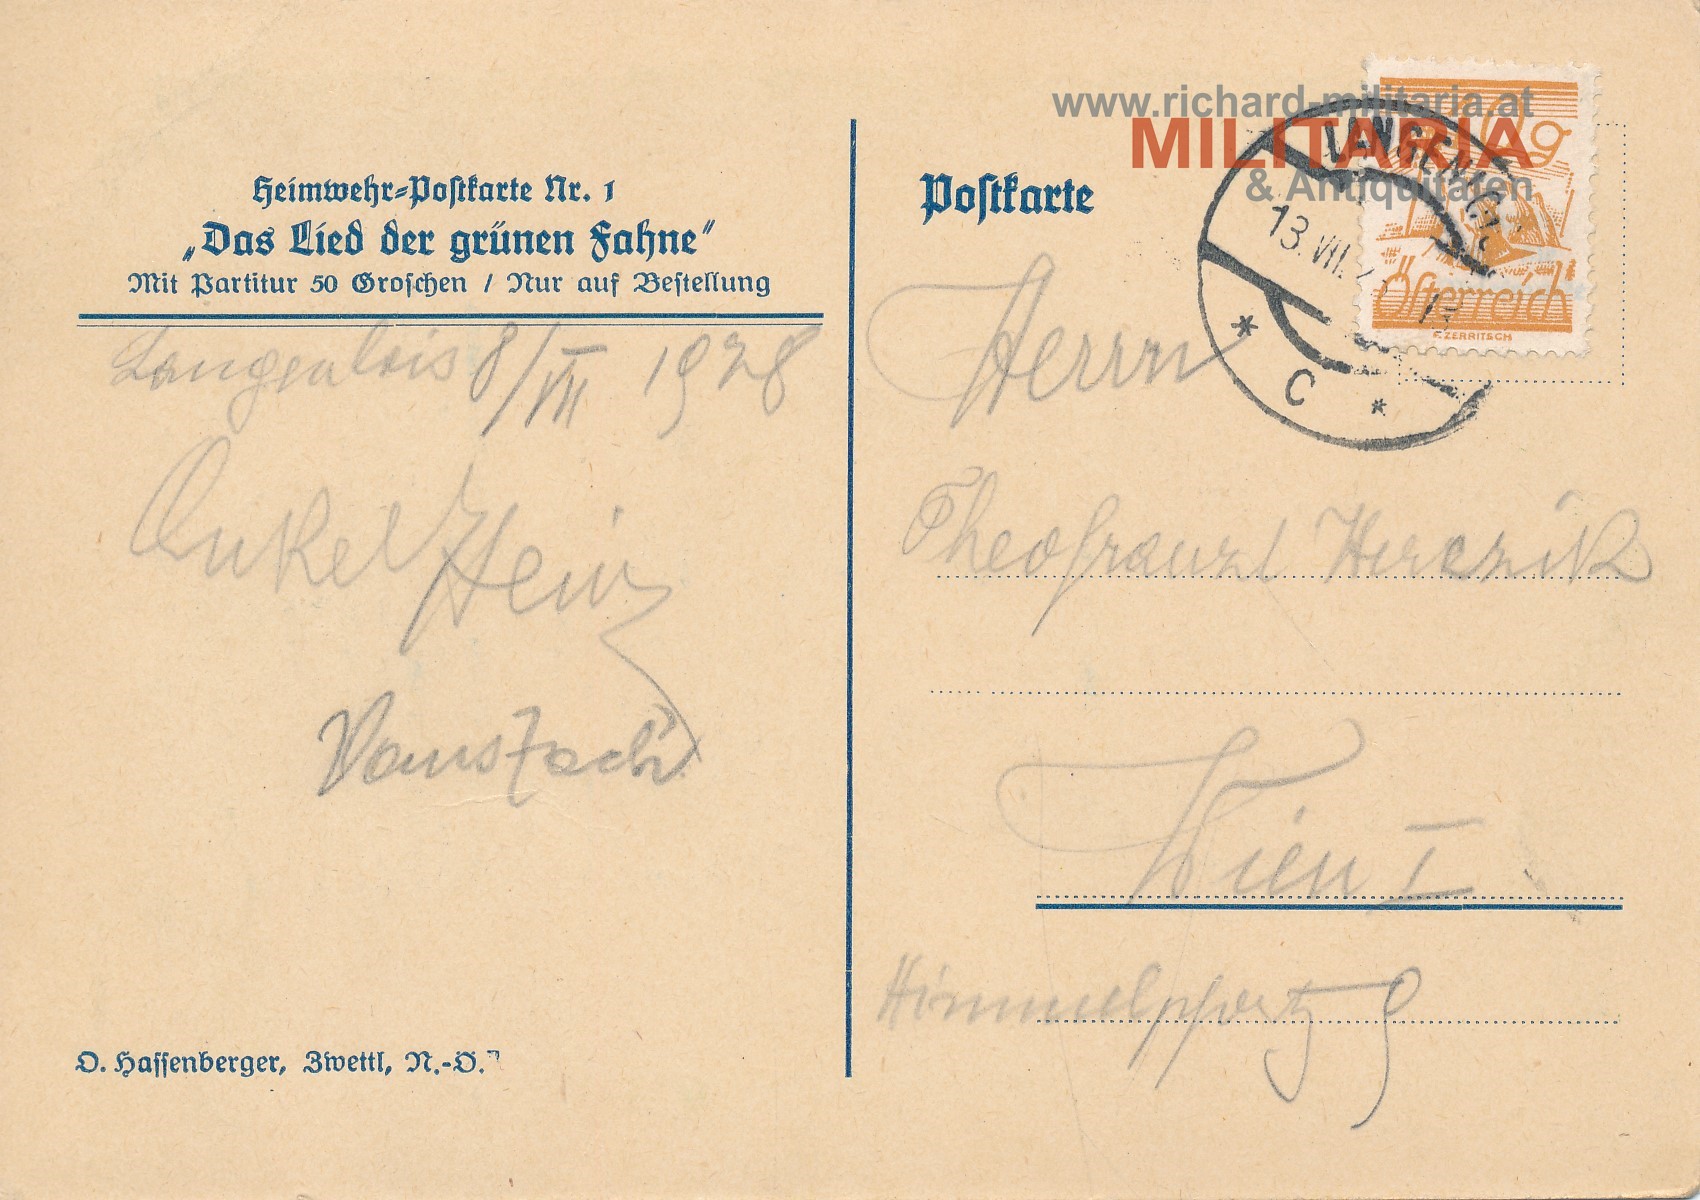 Heimwehr-Postkarte Nr. 1
„Das Lied der grünen Fahne"
Mit Partitur 50 Groschen / Nur auf Bestellung
Langenlois 8/VII 1928
Onkel Heinz
O. Hassenberger, Zwettl, N.-Ö.
Postkarte
www.richard-militaria.at
MILITARIA
& Antiquitäten
LANGENLOIS
13. VII. 2
* C *
g
Österreich
F.ZERRITSCH
Herrn
Theofranzl
Wien I
Himmelpfortg